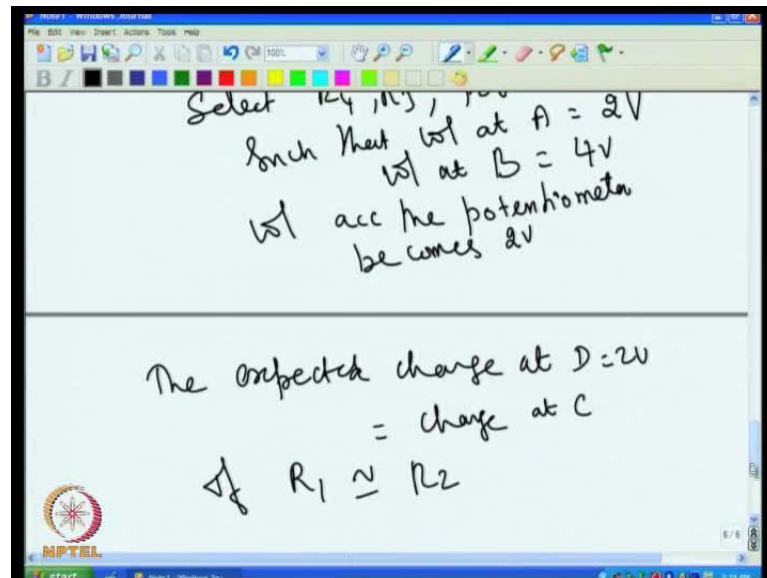 Note1 - Windows Journal
File Edit View Insert Actions Tools Help
100%
B I
Select R4, R5,
Such that vol at A = 2V
vol at B = 4V
vol acc the potentiometer
becomes 2V
The expected change at D = 2V
= change at C
If R1 ≃ R2
NPTEL
6/6
start
Note1 - Windows Jou...